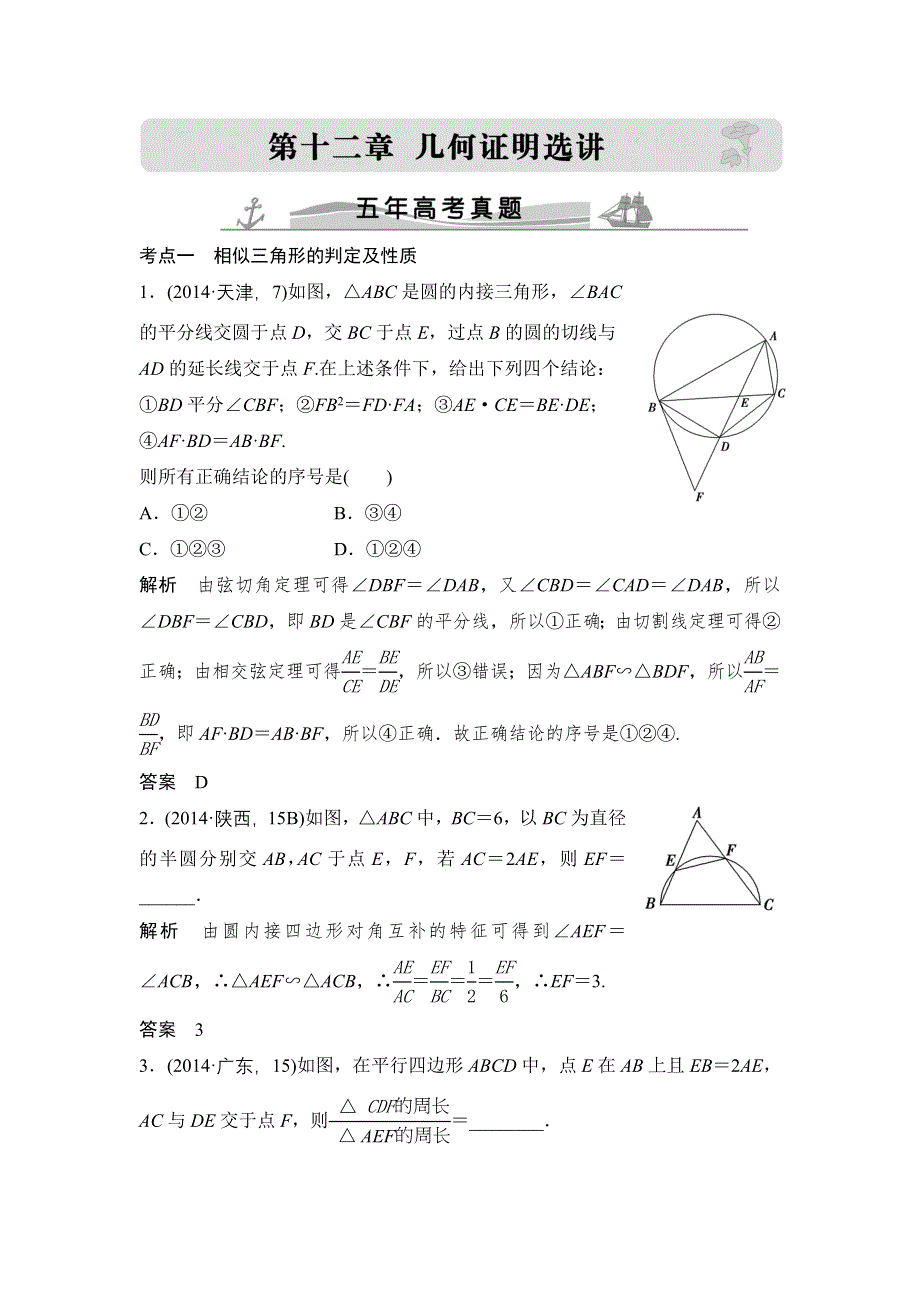 第十二章 几何证明选讲
五年高考真题
考点一 相似三角形的判定及性质
1．(2014·天津，7)如图，△ABC是圆的内接三角形，∠BAC
的平分线交圆于点D，交BC于点E，过点B的圆的切线与
AD的延长线交于点F.在上述条件下，给出下列四个结论：
①BD平分∠CBF；②FB²＝FD·FA；③AE·CE＝BE·DE；
④AF·BD＝AB·BF.
则所有正确结论的序号是(　　)
A．①② B．③④
C．①②③ D．①②④
A
B
C
E
D
F
解析 由弦切角定理可得∠DBF＝∠DAB，又∠CBD＝∠CAD＝∠DAB，所以
∠DBF＝∠CBD，即BD是∠CBF的平分线，所以①正确；由切割线定理可得②
正确；由相交弦定理可得AE/CE＝BE/DE，所以③错误；因为△ABF∽△BDF，所以AB/AF＝
BD/BF，即AF·BD＝AB·BF，所以④正确．故正确结论的序号是①②④.
答案 D
2．(2014·陕西，15B)如图，△ABC中，BC＝6，以BC为直径
的半圆分别交AB，AC于点E，F，若AC＝2AE，则EF＝
______．
A
E
F
B
C
解析 由圆内接四边形对角互补的特征可得到∠AEF＝
∠ACB，∴△AEF∽△ACB，∴AE/AC＝EF/BC＝1/2＝EF/6，∴EF＝3.
答案 3
3．(2014·广东，15)如图，在平行四边形ABCD中，点E在AB上且EB＝2AE，
AC与DE交于点F，则△CDF的周长/△AEF的周长＝________．